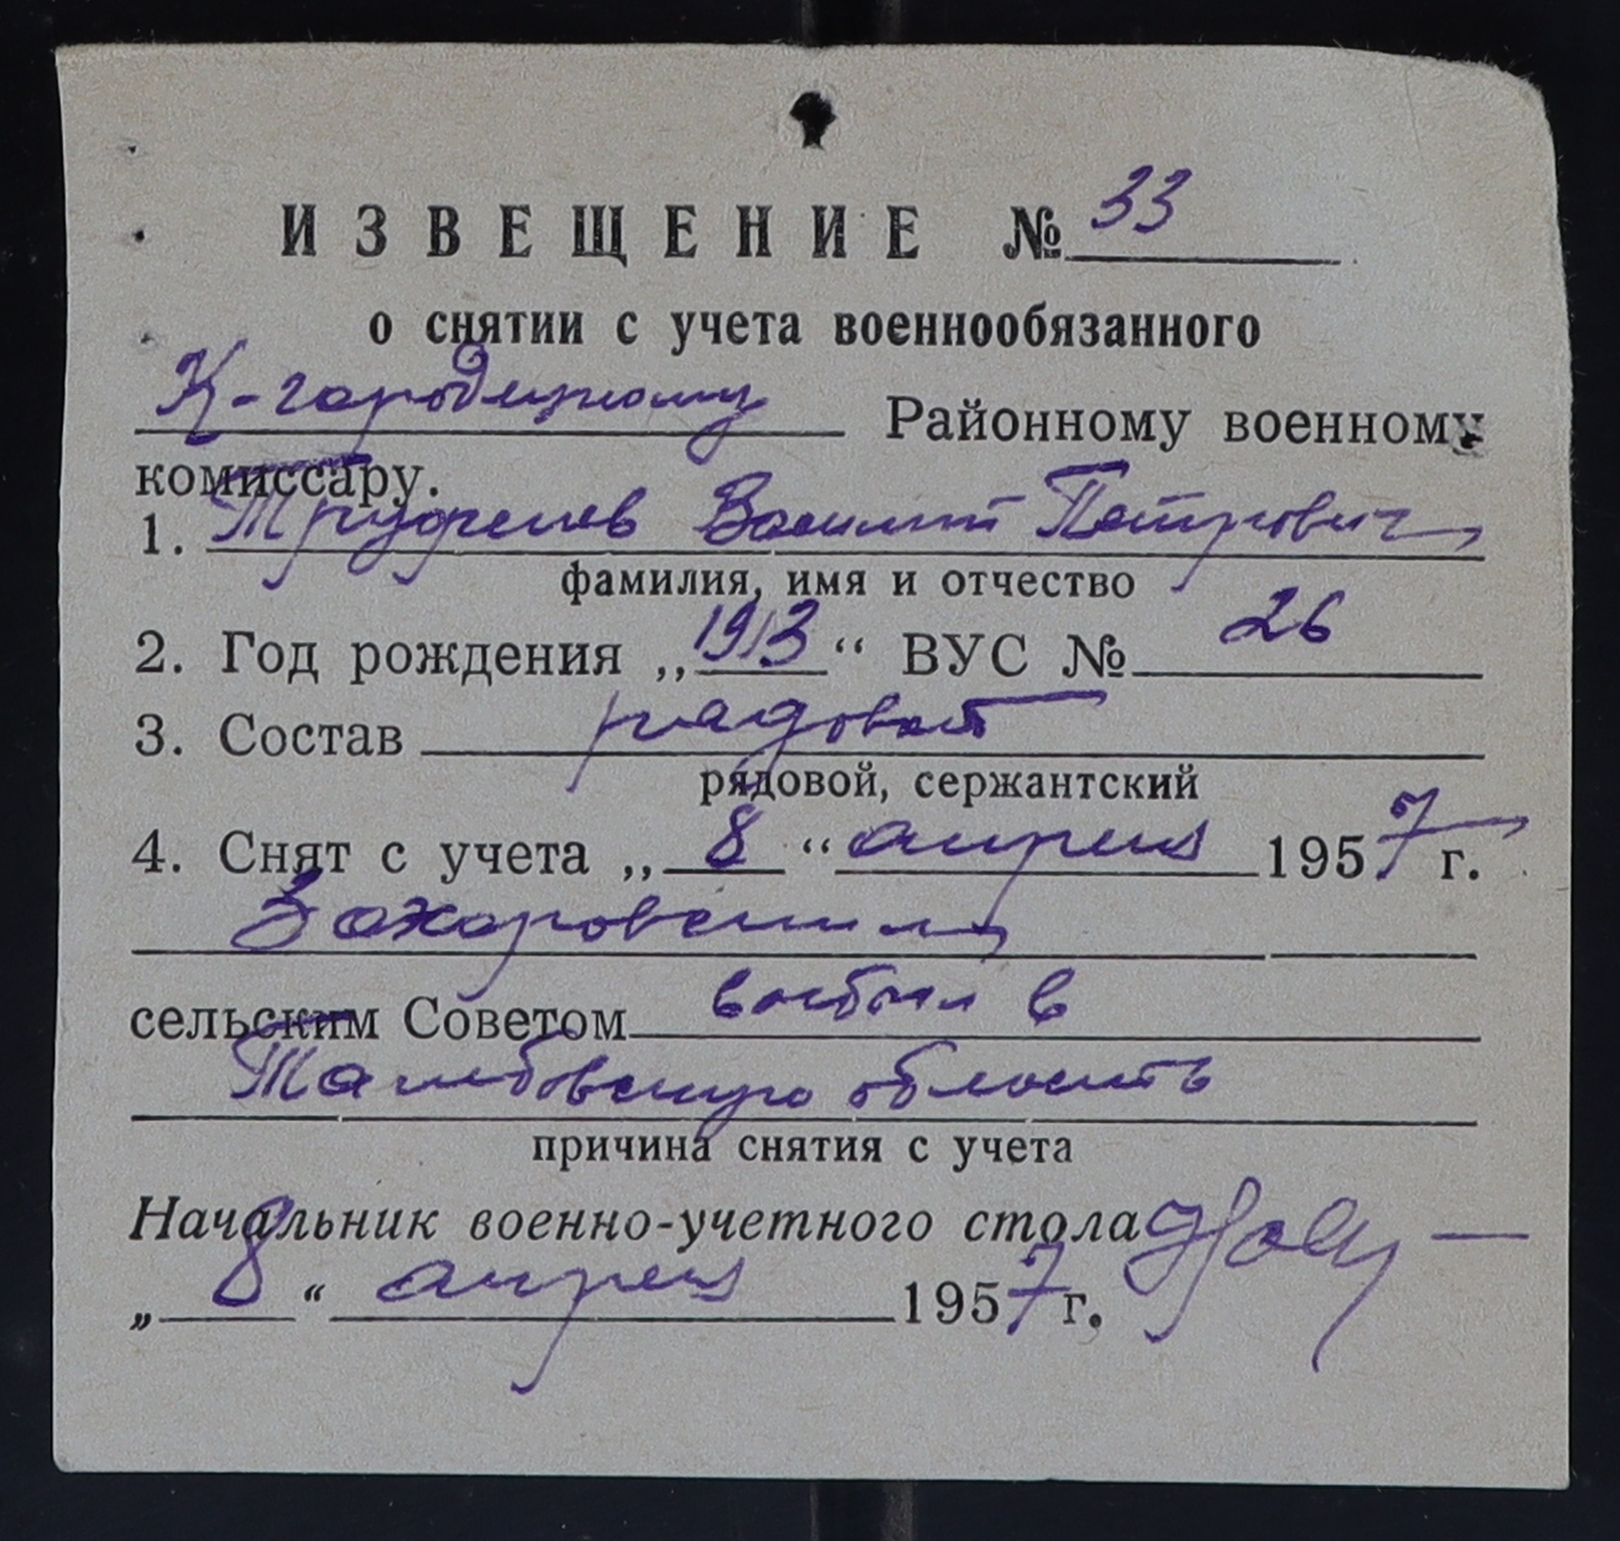 ИЗВЕЩЕНИЕ № 33
о снятии с учета военнообязанного
К-городецкому Районному военному
комиссару.
1. Труфанов Василий Петрович
фамилия, имя и отчество
2. Год рождения „1913“ ВУС № 26
3. Состав рядовой
рядовой, сержантский
4. Снят с учета „8“ апреля 1957 г.
Захаровским
сельским Советом выбыл в
Тамбовскую область
причина снятия с учета
Начальник военно-учетного стола
„8“ апреля 1957 г.